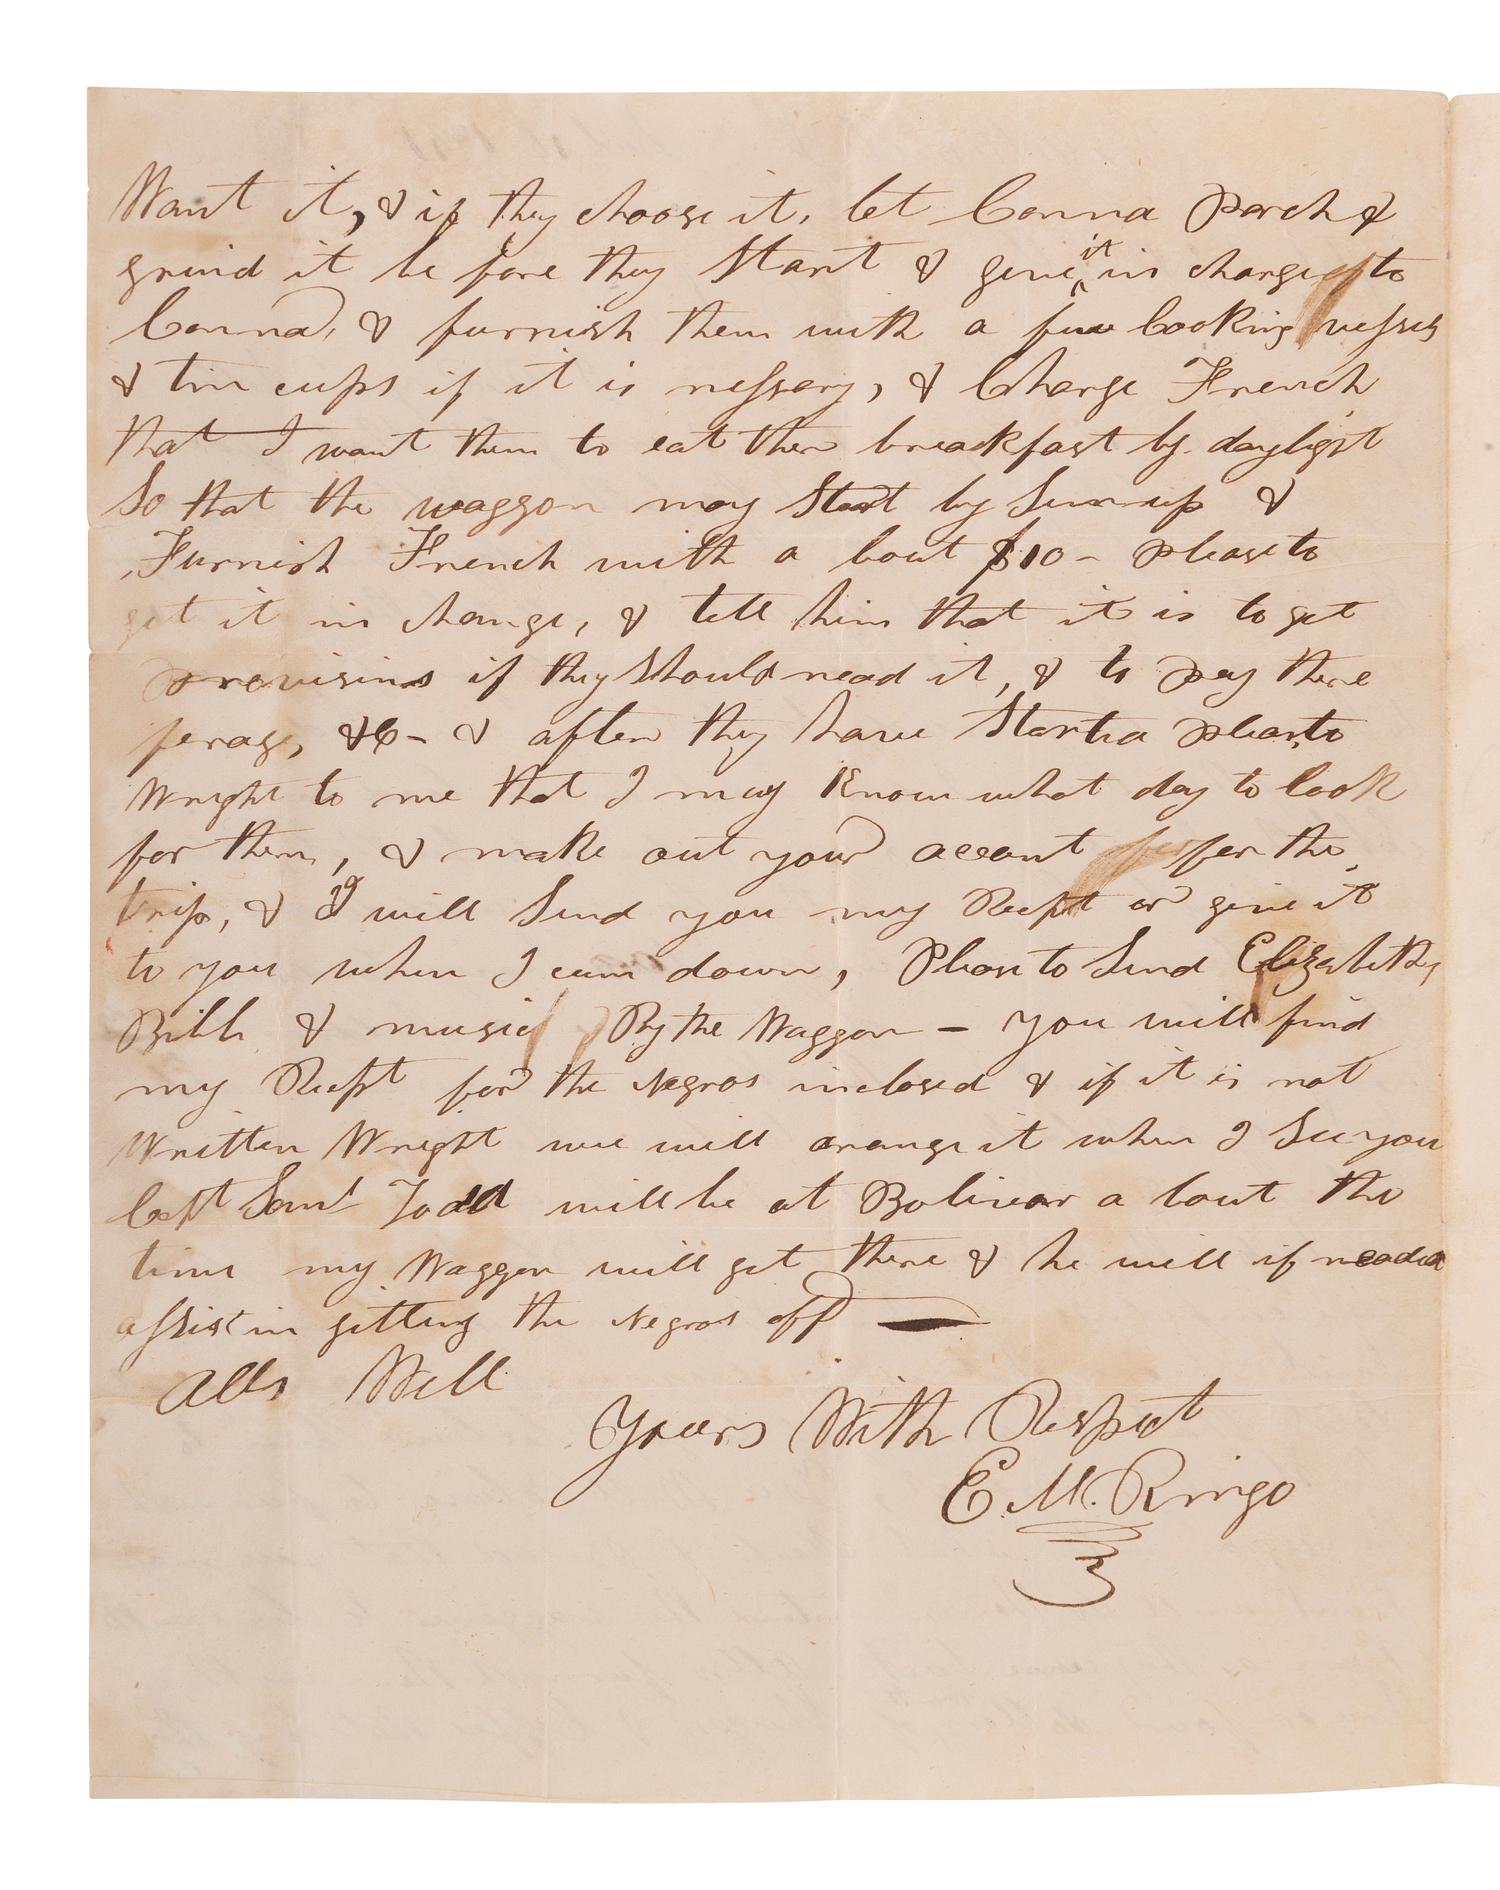 Want it, & if they choose it, let Conna parch &
grind it be fore they Start & give it in charge to
Conna, & furnish them with a few Cooking vessels
& tin cups if it is nessary, & Charge French
that I want them to eat ther breakfast by daylight
So that the waggon may Start by Sun up &
Furnish French with a bout $10 - please to
get it in change, & tell him that it is to get
provisins if they Should nead it, & to pay there
ferage, &C - & after they have Started please to
Wright to me that I may Know what day to look
for them, & make out your account for the
trip, & I will Send you my Recpt or give it
to you when I cum down, Please to Send Elizabeths
Bible & music By the Waggon - you will find
my Recpt for the Negros inclosed & if it is not
Written Wright we will arange it when I See you
Capt Saml Todd will be at Bolivar a bout the
time my Waggon will get there & he will if neaded
assist in gitting the Negros off
Alls Well
Yours With Respect
E. M. Ringo